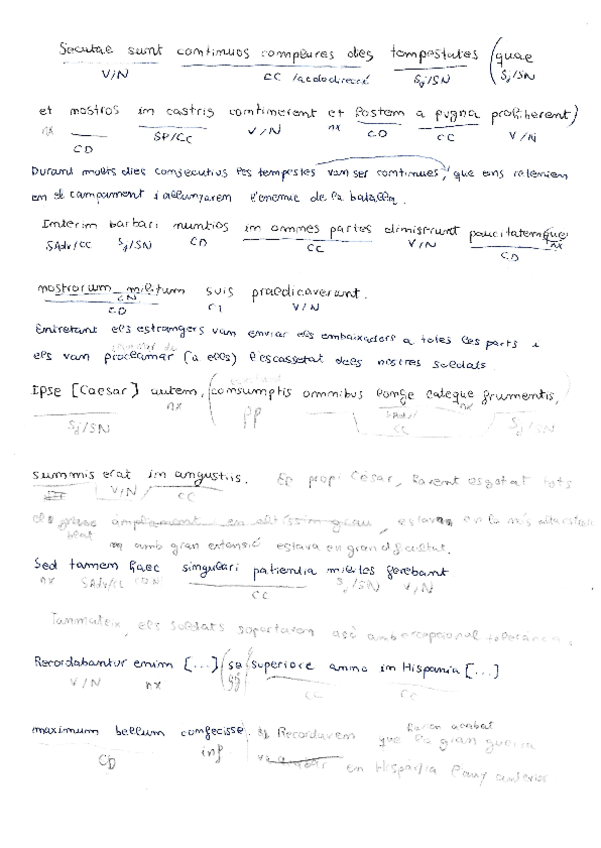 Secutae sunt continuos complures dies tempestates (quae
V/N CC/acdo directe Sj/SN Sj/SN
et nostros in castris continerent et hostem a pugna prohiberent)
nx CD SP/CC V/N nx CD CC V/N
Durant molts dies consecutius les tempestes van ser contínues, que ens retenien
en el campament i allunyarem l'enemic de la batalla.
Interim barbari nuntios in omnes partes dimiserunt paucitatemque
SAdv/CC Sj/SN CD CC V/N CD nx
nostrorum militum suis praedicaverunt.
CN CD CI V/N
Entretant els estrangers van enviar els embaixadors a totes les parts i
els van proclamar (a ells) l'escassetat dels nostres soldats.
Ipse [Caesar] autem, (consumptis omnibus longe lateque frumentis,
Sj/SN nx PP SAdv/CC nx Sj/SN
summis erat in angustiis. El propi Cèsar, havent esgotat tots
V/N CC
els amplament en altíssim grau, estava en la més
blat amb gran extensió estava en gran dificultat.
Sed tamen haec singulari patientia milites ferebant
nx SAdv/CC CD N CC Sj/SN V/N
Tanmateix, els soldats suportaven això amb excepcional tolerància.
Recordabantur enim [...] (se (superiore anno in Hispania [...]
V/N nx CC CC
maximum bellum confecisse. Recordaven que la gran guerra
havien acabat
CD inf en Hispània l'any anterior